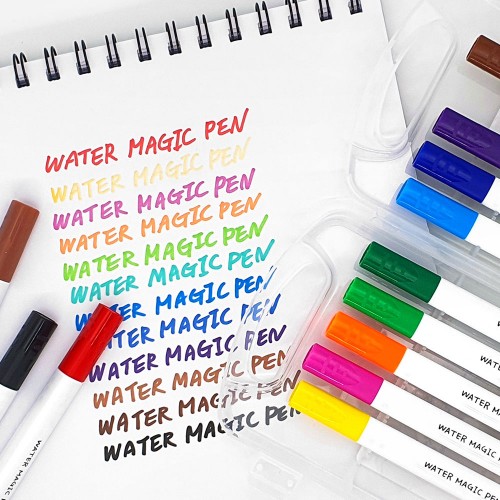 WATER MAGIC PEN
WATER MAGIC PEN
WATER MAGIC PEN
WATER MAGIC PEN
WATER MAGIC PEN
WATER MAGIC PEN
WATER MAGIC PEN
WATER MAGIC PEN
WATER MAGIC PEN
WATER MAGIC PEN
WATER MAGIC PEN
WATER MAGIC PEN
WATER MAGIC
WATER
WATER MA
WATER MAGIC PE
WATER MAGIC PEN